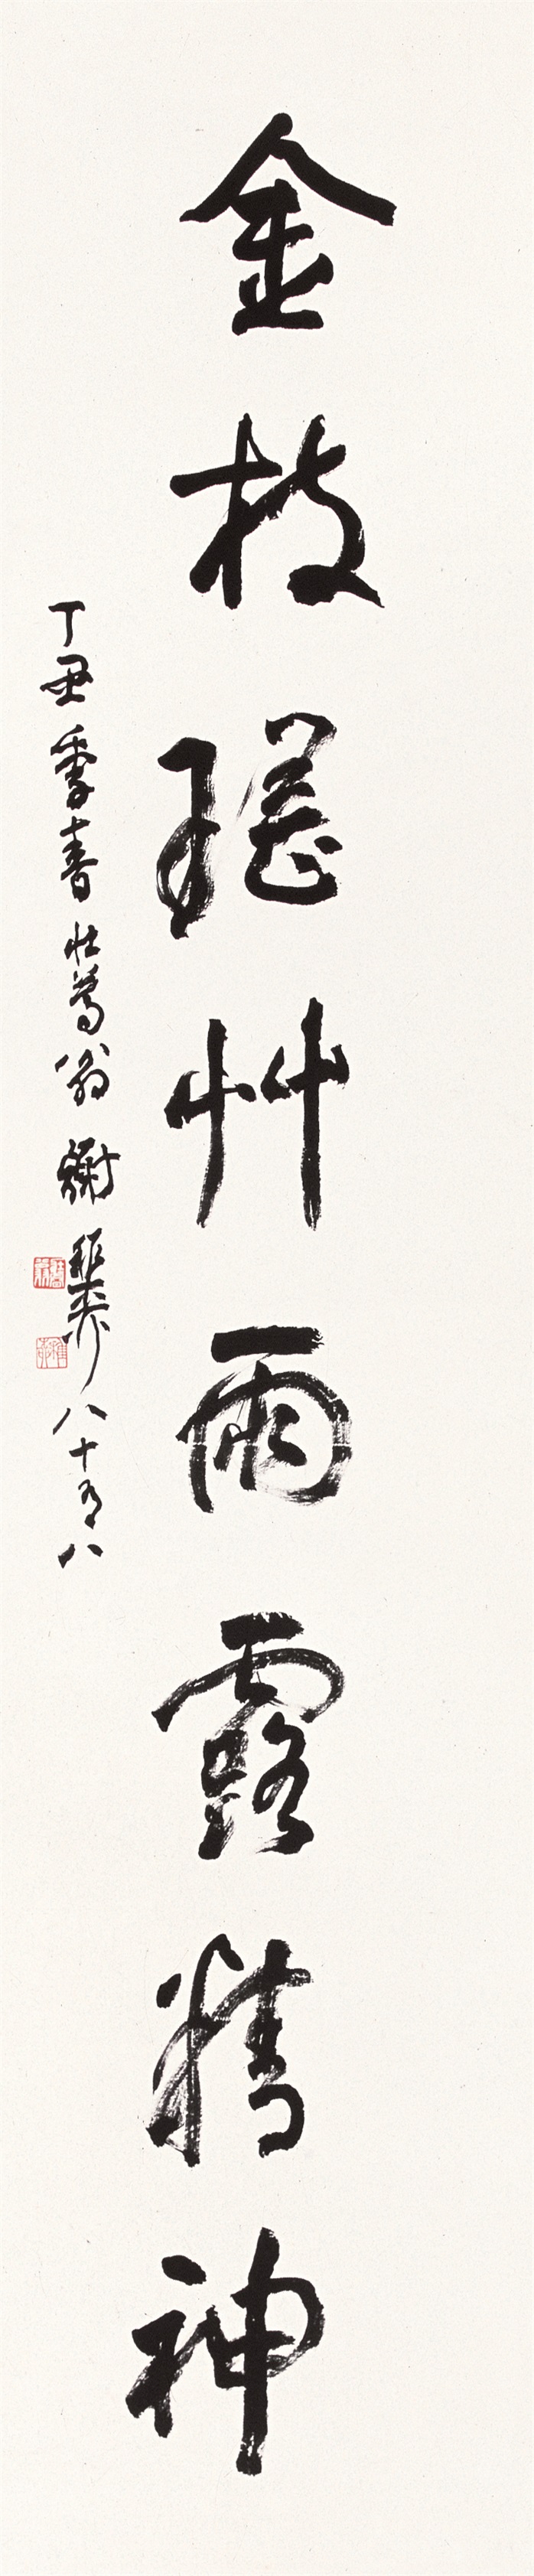 金枝瑤艸雨露精神
丁丑季春壯暮翁謝稚柳八十有八